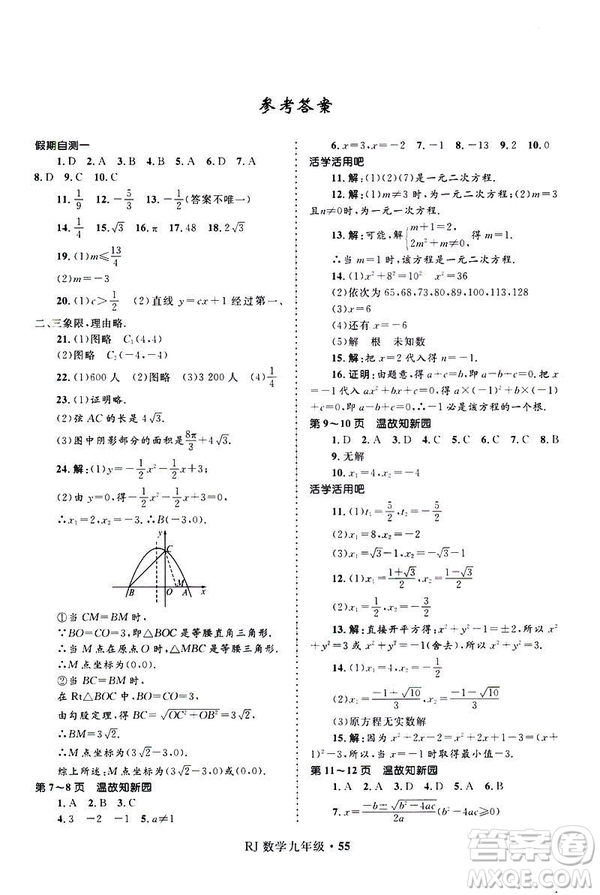 参考答案
假期自测一
1. D 2. A 3. C 4. D 5. B 6. A 7. A
8. D 9. C 10. C
11. 1/9 12. -5/3 13. -1/2(答案不唯一)
14. 1/4 15. √3 16. π 17. 48 18. 2√3
19. (1)m≤13/4
(2)m=1
20. (1)c>1/4 (2)直线 y=cx+1 经过第一、
二、三象限,理由略.
21. (1)图略 C₁(4,4)
(2)图略
22. (1)600人 (2)图略 (3)3 200人 (4)1/4
23. (1)证明略.
(2)弦 AC 的长是 4√3.
(3)图中阴影部分的面积是 8π/3+4√3.
24. 解:(1)y=-1/2x²-1/2x+3;
(2)由 y=0,得 -1/2x²-1/2x+3=0.
∴x₁=2,x₂=-3.∴B(-3,0).
y
C
B O M A x
①当 CM=BM 时,
∵BO=CO=3,即△BOC 是等腰直角三角形.
∴当 M 点在原点 O 时,△MBC 是等腰三角形.
∴M 点坐标为(0,0).
②当 BC=BM 时,
在 Rt△BOC 中,BO=CO=3,
由勾股定理,得 BC=√(OC²+OB²)=3√2.
∴BM=3√2.
∴M 点坐标为(3√2-3,0).
综上所述,M 点坐标为(0,0)或(3√2-3,0).
第 7~8 页 温故知新园
1. A 2. A 3. B 4. A 5. D
6. x=3,x=-2 7. -1 8. -13 9. 2 10. 0
活学活用吧
11. 解:(1)(2)(7)是一元二次方程.
12. 解:(1)m≠3 时,为一元二次方程. (2)m=3
且 n≠0 时,为一元一次方程.
13. 解:可能,解得{m+1=2, m²+m≠0,}∴m=1.
∴当 m=1 时,该方程是一元二次方程.
14. (1)x²+8²=10² x²=36
(2)依次为 65,68,73,80,89,100,113,128
(3)x=6
(4)还有 x=-6
(5)解 根 未知数
15. 解:由题意,得 m²=4 且 m+2≠0,∴m=2.
16. 证明:由题意,得 a+c=b,即 a-b+c=0,-1
代入 ax²+bx+c=0 中成立,∴-1 必是该方程的一个根.
第 9~10 页 温故知新园
1. D 2. C 3. A 4. D 5. D 6. C 7. C 8. B
9. 无解
10. x₁=4,x₂=-4
活学活用吧
11. (1)t₁=5/2,t₂=-5/2
(2)x₁=√3-1,x₂=-√3-1
12. (1)x₁=(1+√3)/2,x₂=(1-√3)/2
(2)x₁=4,x₂=-2
13. 解:直接开平方得:x²+y²-1=±2.∴x²+y²=3
或 x²+y²=-1(舍去).∴x²+y²=3.
14. 解:(1)x₁=1,x₂=-3
(2)x₁=(-1-√10)/3,x₂=(-1+√10)/3
(3)原方程无实数解
15. 解:x²+2x-2=x²+2x+1-3=(x+1)²-3.
∴当 x=-1 时,取得最小值-3.
第 11~12 页 温故知新园
1. A 2. C 3. A 4. C 5. D 6. B
7. x=(-b±√(b²-4ac))/2a(b²-4ac≥0)
RJ 数学九年级·55